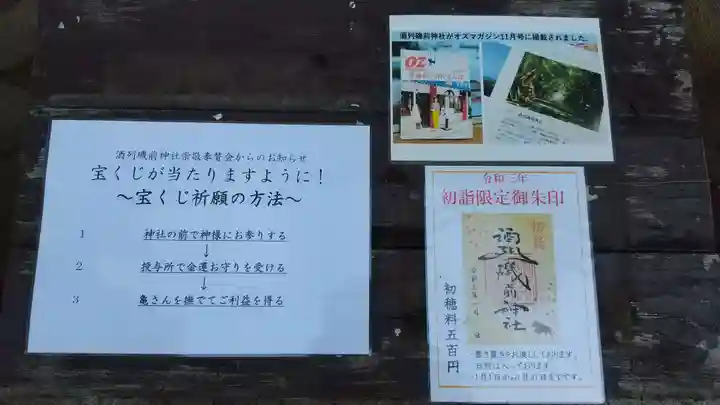 酒列磯前神社崇敬奉賛会からのお知らせ
宝くじが当たりますように!
〜宝くじ祈願の方法〜
1 神社の前で神様にお参りする
↓
2 授与所で金運お守りを受ける
↓
3 亀さんを撫でてご利益を得る
酒列磯前神社がオズマガジン11月号に掲載されました。
OZ
令和三年
初詣限定御朱印
酒列磯前神社
初穂料五百円
書き置きをお渡ししております。
日付は入っております